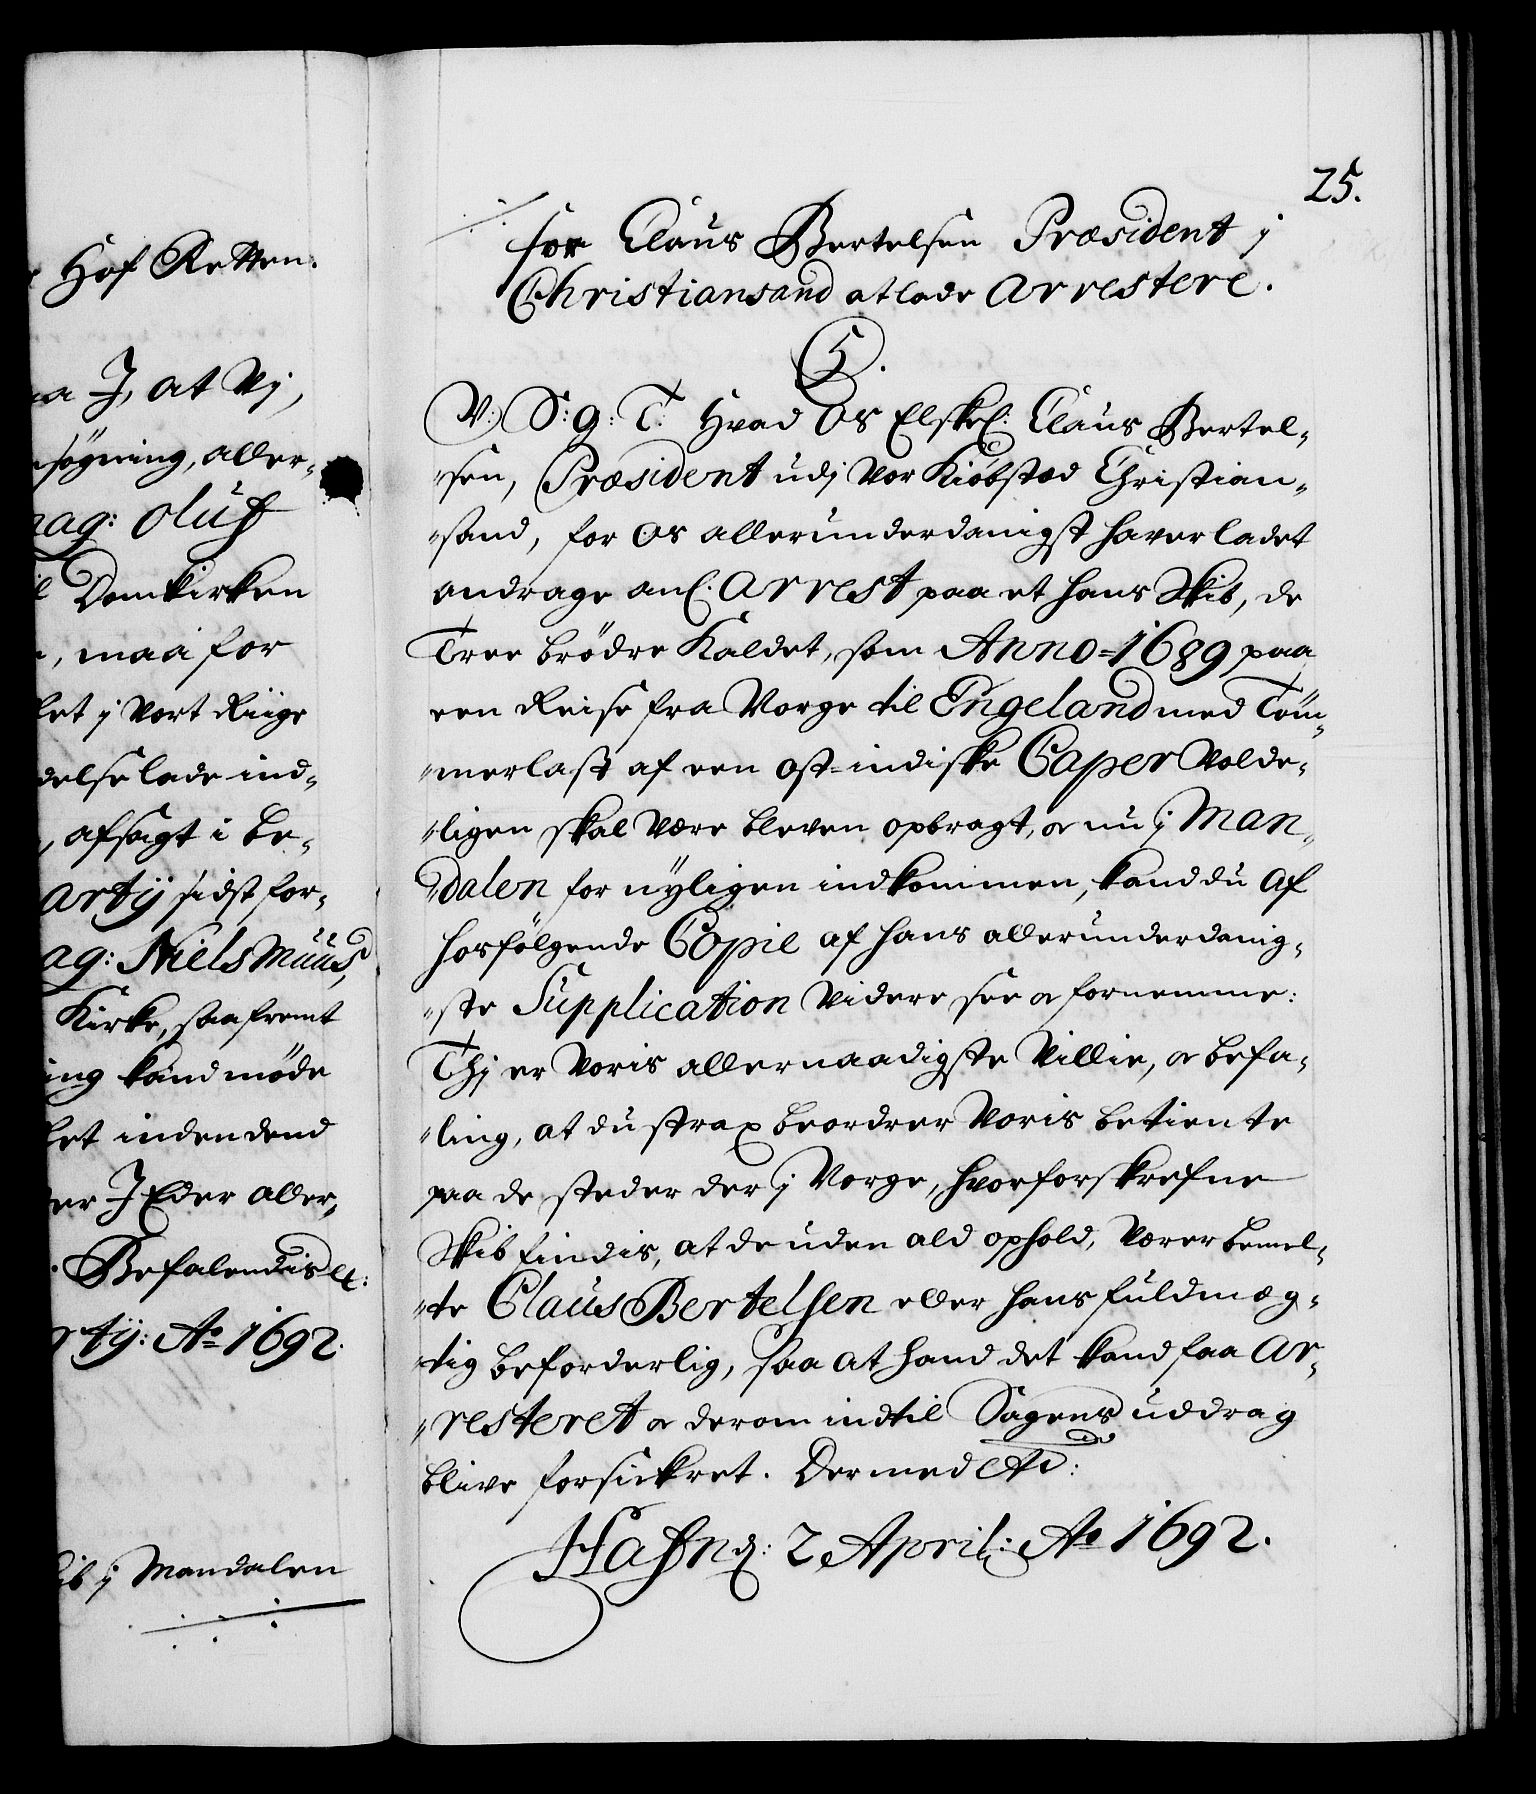 Hof Retten.
J, at Vj,
søgning, aller-
mag: Oluf
Domkirken
, maa for
let j Vort Riige
delse lade ind-
, afsagt i be-
artij sidst for-
ag: Niels Muus,
Kirke, saafremt
ing kand møde
let indendend
er J Eder aller-
Befalendis etc:
rtij: Ao 1692.
ib j Mandalen
25.
for Claus Bertelsen Præsident j
Christiansand at lade Arrestere.
5.
V: S: G: T: Hvad Os Elskel: Claus Bertel-
sen, Præsident udj Vor Kiøbsted Christian-
sand, for Os allerunderdanigst haver ladet
andrage anl. Arrest paa et hans Skib, de
Tree brødre Kaldet, som Anno 1689 paa
een Reise fra Norge til Engeland med Tøm-
merlast af een Ost-indiske Caper Volde-
ligen skal være bleven opbragt, og nu j Man-
dalen for nyligen indkommen, kand du af
hosfølgende Copie af hans allerunderdanig-
ste Supplication Videre see og fornemme:
Thj er Voris allernaadigste Villie, og befa-
ling, at du strax beordrer Voris betiente
paa de steder der j Norge, hvor forskrefne
Skib findis, at de uden ald ophold, Være bemel-
te Claus Bertelsen eller hans fuldmæg-
tig beforderlig, saa at hand det kand faa Ar-
resteret og derom indtil Sagens uddrag
blive forsickret. Dermed etc:
Hafnæ: 2 April: Ao 1692.